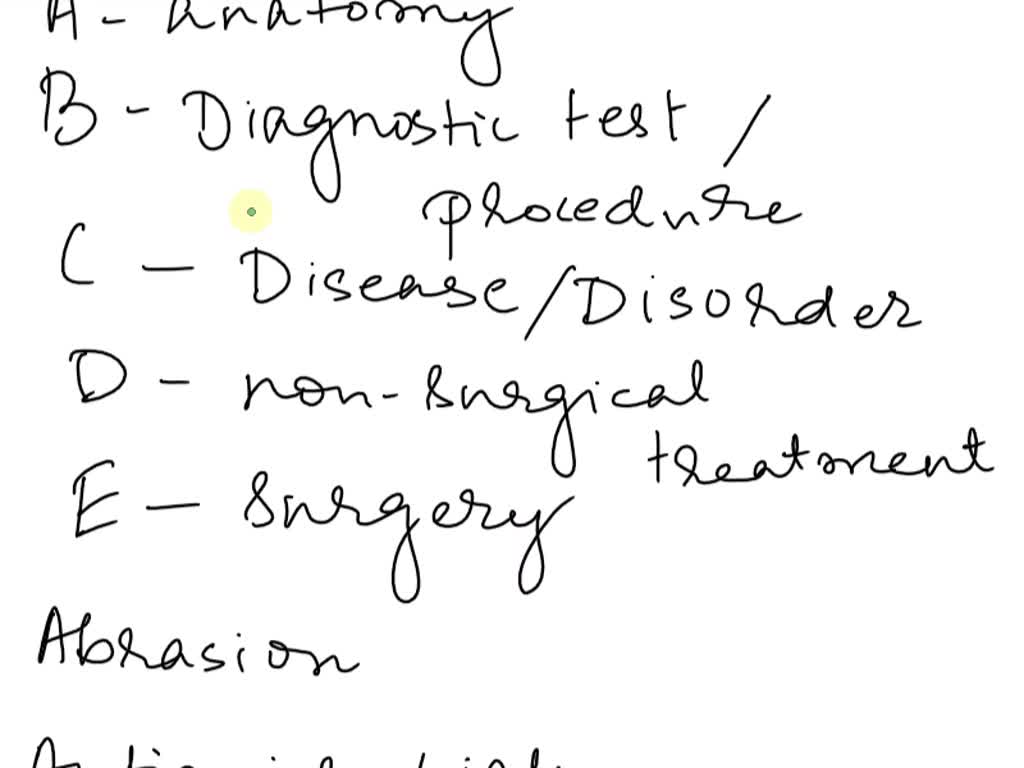 A - Anatomy
B - Diagnostic test /
procedure
C - Disease/Disorder
D - non-surgical
treatment
E - Surgery
Abrasion